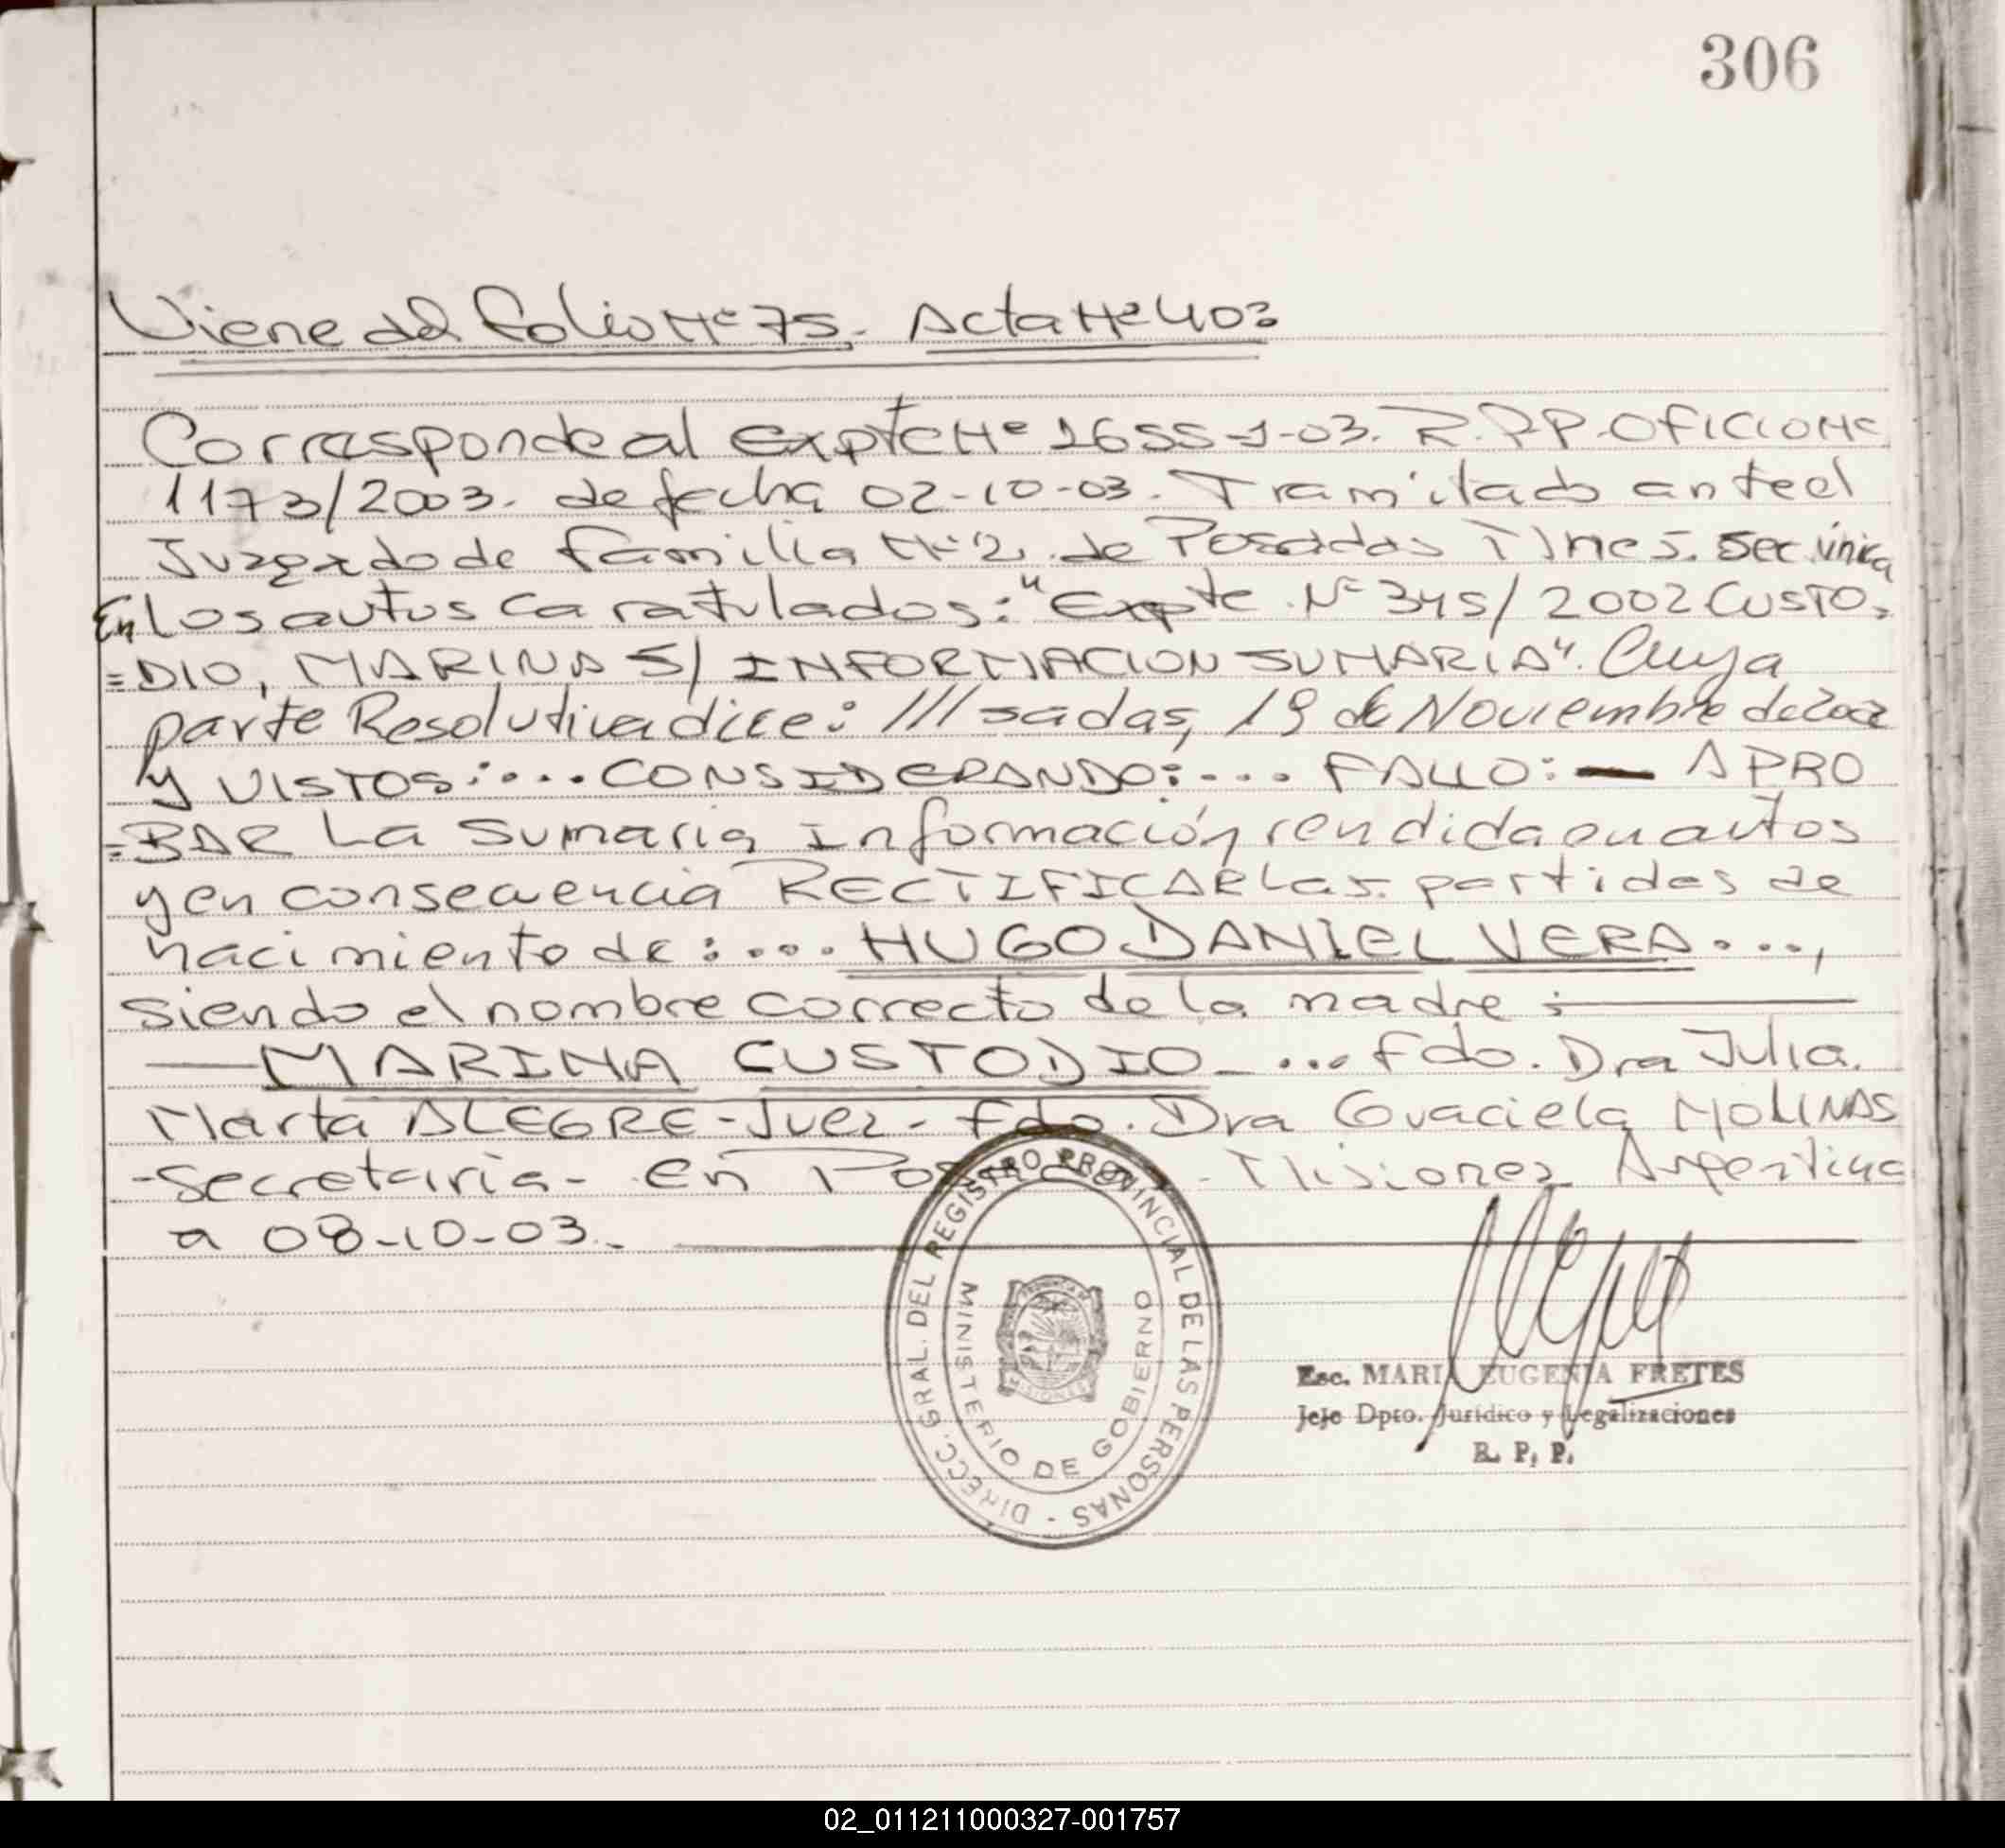 306
Viene del folio Nº 75. Acta Nº 403
Corresponde al Expte Nº 1655-1-03. R.P.P. OFICIO Nº
1173/2003. de fecha 02-10-03. Tramitado ante el
Juzgado de Familia Nº 2. de Posadas Mnes. Sec. única
En los autos caratulados: "Expte. Nº 345/2002 CUSTO,
=DIO, MARINA S/ INFORMACION SUMARIA". Cuya
parte Resolutiva dice: ///sadas, 19 de Noviembre de 2002
Y VISTOS:... CONSIDERANDO:... FALLO: — APRO
=BAR La Sumaria Información rendida en autos
y en consecuencia RECTIFICAR Las partidas de
nacimiento de:.... HUGO DANIEL VERA...,
siendo el nombre correcto de la madre:
—MARINA CUSTODIO_... Fdo. Dra Julia.
Marta ALEGRE-Juez- Fdo. Dra Graciela MOLINAS
-Secretaria- En Posadas - Misiones Argentina
a 08-10-03.-
DIRECC. GRAL. DEL REGISTRO PROVINCIAL DE LAS PERSONAS -
MINISTERIO DE GOBIERNO
MISIONES
Esc. MARIA EUGENIA FRETES
Jefe Dpto. Jurídico y Legalizaciones
R. P. P.
02_011211000327-001757